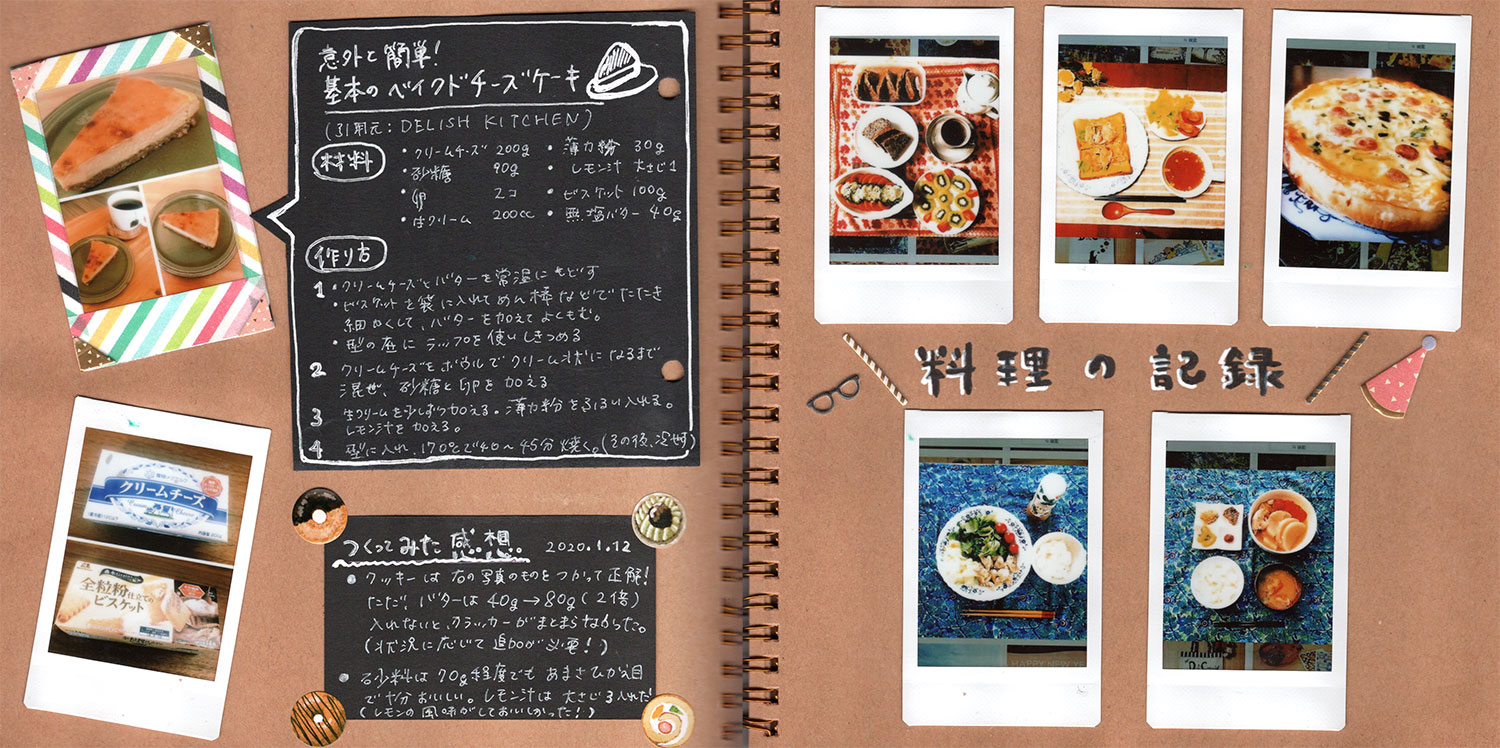 意外と簡単！
基本のベイクドチーズケーキ
（引用元：DELISH KITCHEN）
材料
・クリームチーズ 200g
・砂糖 90g
・卵 2コ
・生クリーム 200cc
・薄力粉 30g
・レモン汁 大さじ1
・ビスケット 100g
・無塩バター 40g
作り方
1 ・クリームチーズとバターを常温にもどす
・ビスケットを袋に入れてめん棒などでたたき
細かくして、バターを加えてよくもむ。
・型の底にラップを使いしきつめる
2 クリームチーズをボウルでクリーム状になるまで
混ぜ、砂糖と卵を加える
3 生クリームを少しずつ加える。薄力粉をふるい入れる。
レモン汁を加える。
4 型に入れ、170℃で40〜45分焼く。（その後、冷ます）
クリームチーズ
全粒粉仕立ての
ビスケット
つくってみた感想 2020.1.12
・クッキーは右の写真のものをつかって正解！
ただ、バターは40g→80g（2倍）
入れないと、クラッカーがまとまらなかった。
（状況に応じて追加が必要！）
・砂糖は70g程度でもあまさひかえ目
で十分おいしい。レモン汁は大さじ3入れた！
（レモンの風味がしておいしかった！）
料理の記録